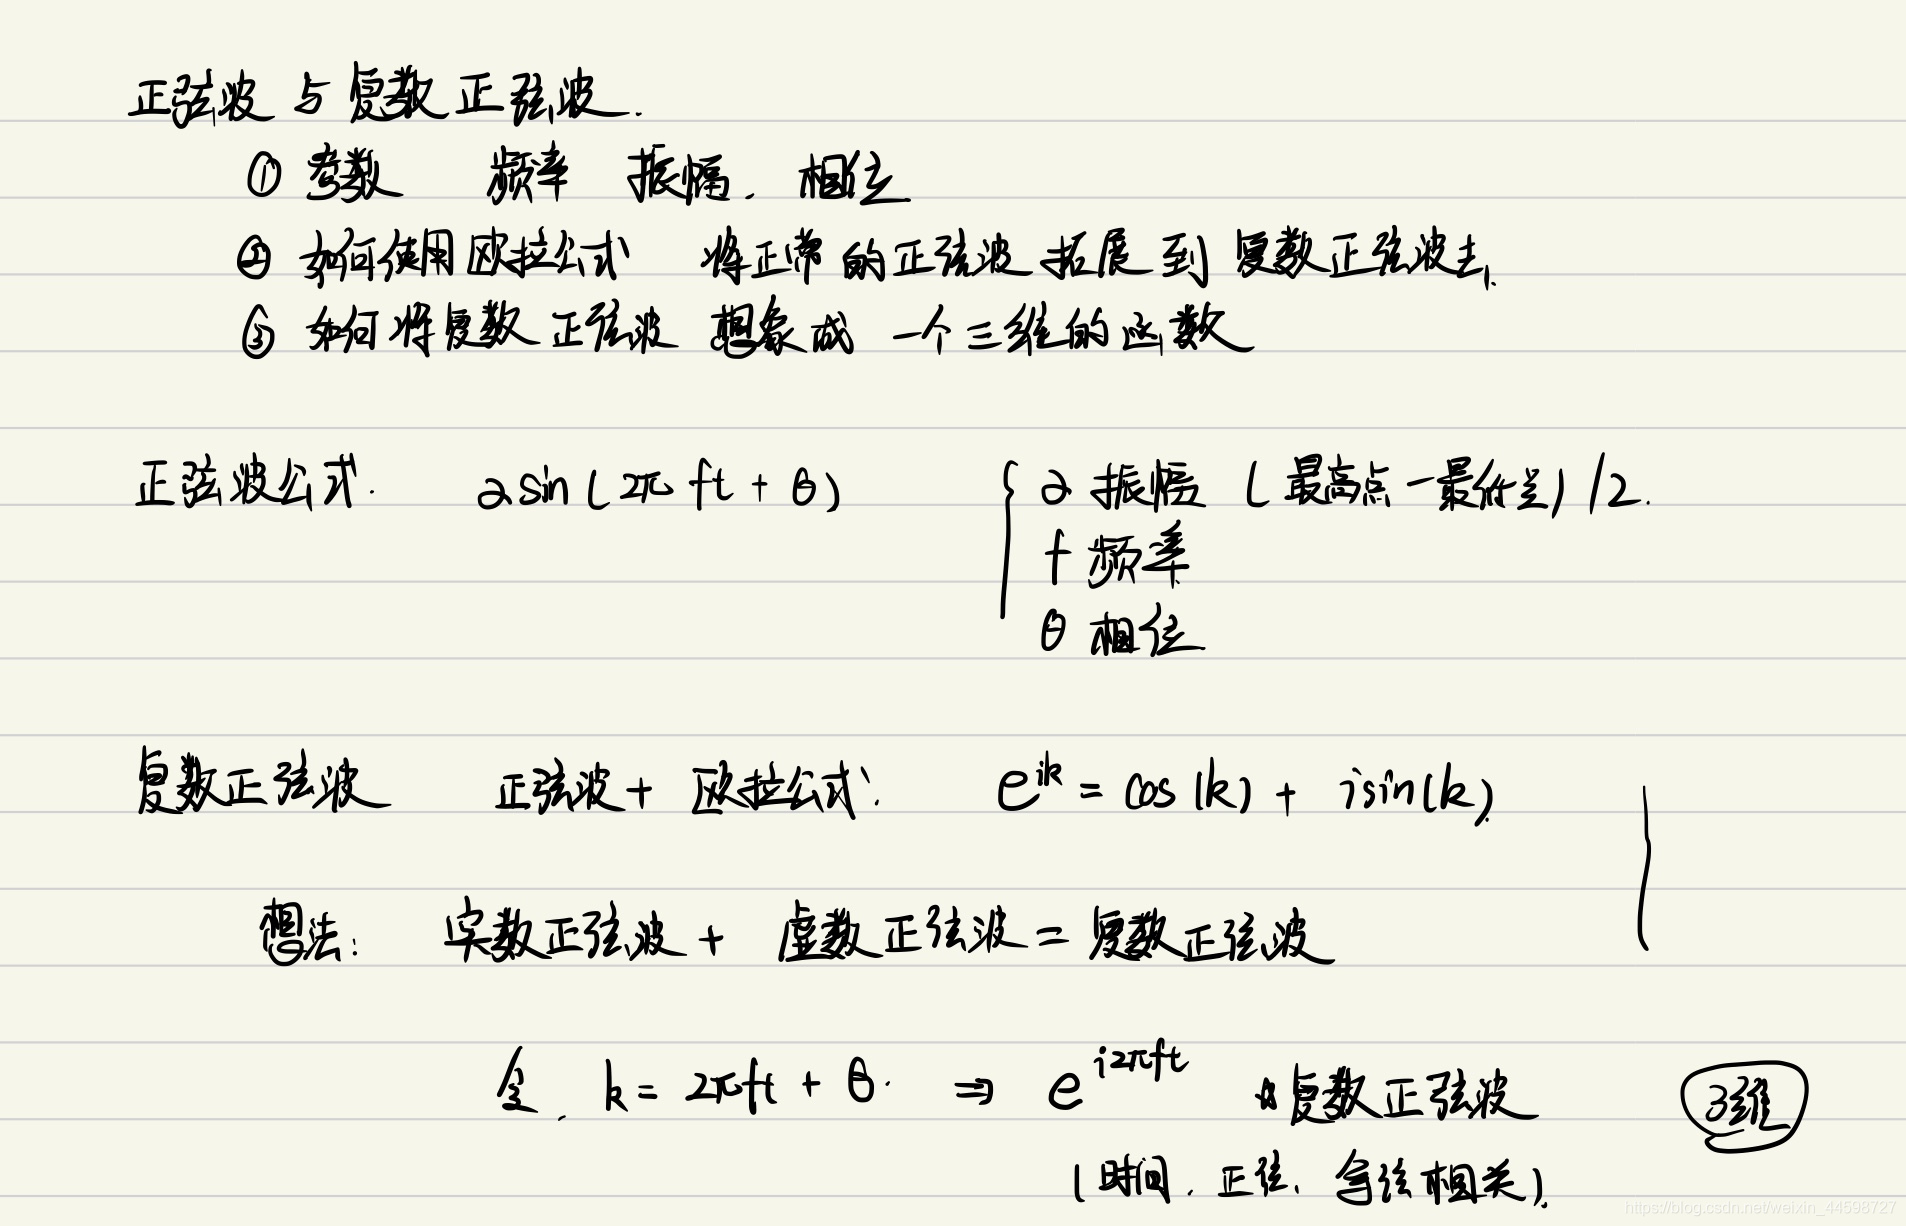 正弦波与复数正弦波.
① 参数 频率 振幅. 相位
② 如何使用欧拉公式 将正常的正弦波拓展到复数正弦波去.
③ 如何将复数正弦波 想象成 一个三维的函数
正弦波公式. a sin(2π ft + θ)
a 振幅 (最高点-最低点)/2.
f 频率
θ 相位
复数正弦波 正弦波 + 欧拉公式: e^{ik} = cos(k) + isin(k)
想法: 实数正弦波 + 虚数正弦波 = 复数正弦波
令. k = 2πft + θ. ⇒ e^{i2πft} 复数正弦波 3维
(时间. 正弦. 余弦相关).
https://blog.csdn.net/weixin_44598727